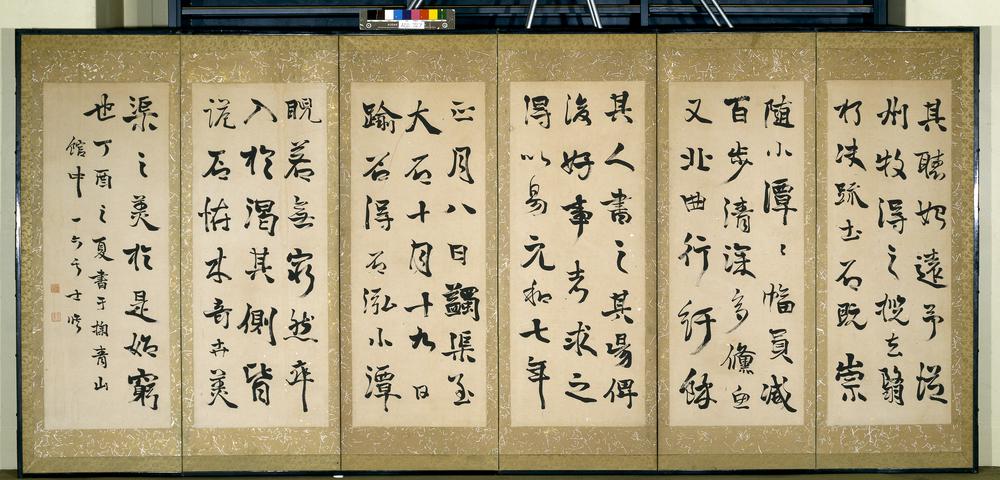 其聽始遠予從
州牧得之攬去翳
朽決疏土石既崇
墮小潭〻幅員減
百步清深多鯈魚
又北曲行紆餘
其人書之其陽俾
後好事者求之
得以易元和七年
正月八日蠲渠至
大石十月十九日
踰石得石泓小潭
睨若無窮然卒
入於渴其側皆
詭石怪木奇卉美
渠之美於是始窮
也丁酉之夏書于掬青山
館中一六居士